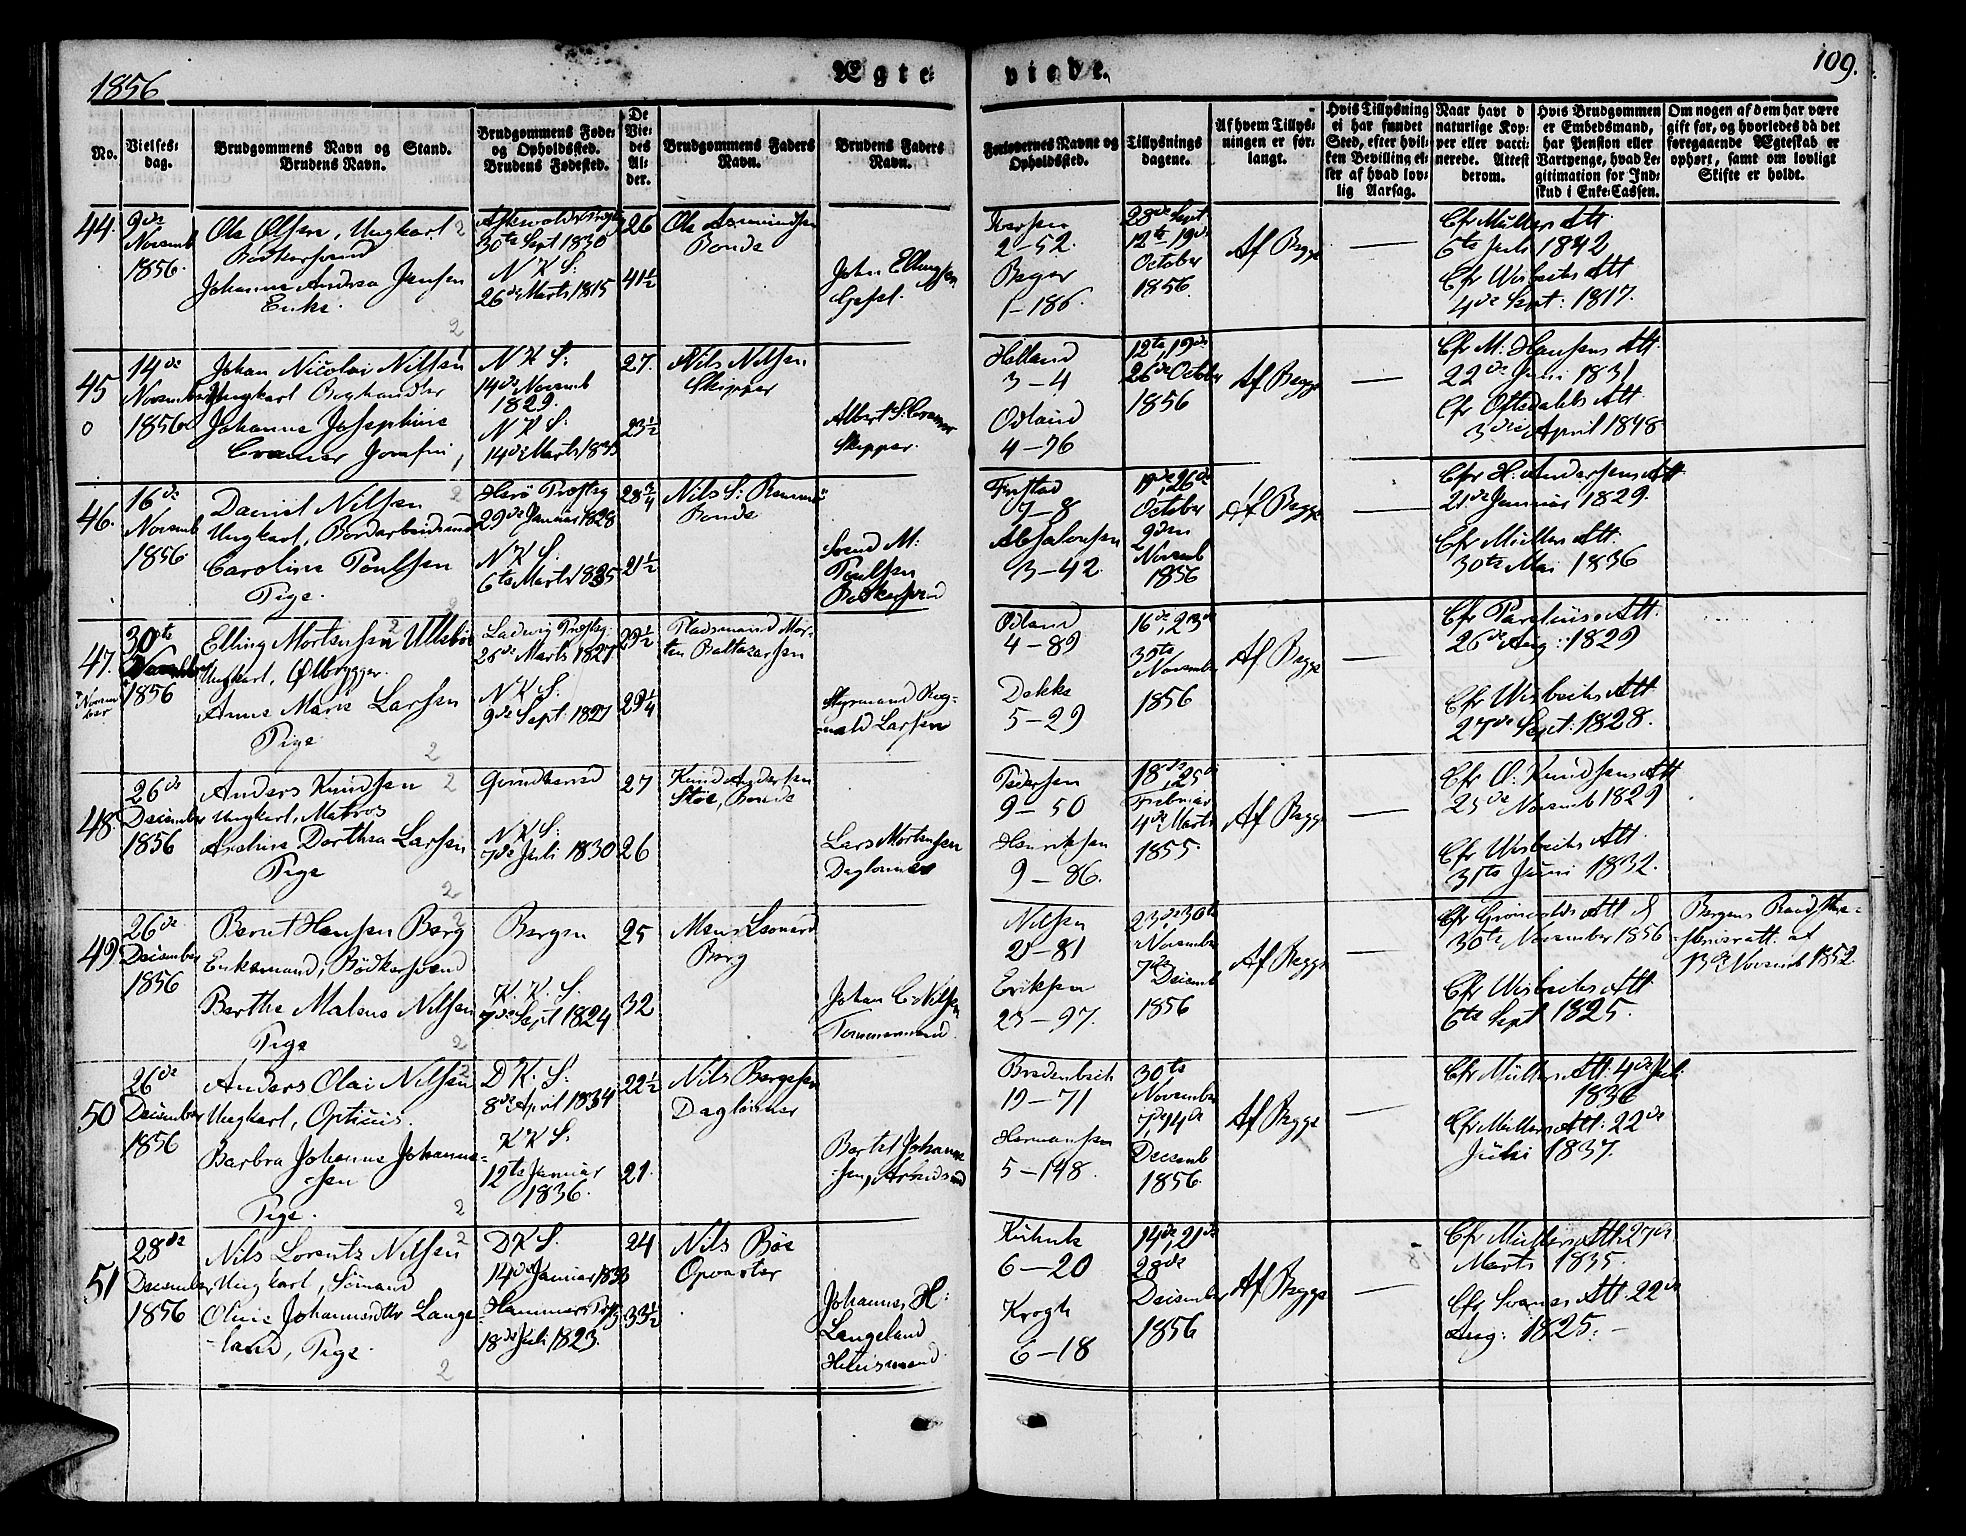 1856
Ægte
viede.
109.
No.
Vielses-
dag.
Brudgommens Navn og Stand.
Brudens Navn.
Brudgommens Føde-
og Opholdssted.
Brudens Fødested.
De
Vie-
des
Al-
der.
Brudgommens Faders
Navn.
Brudens Faders
Navn.
Forlovernes Navne og
Opholdssted.
Tillysnings
dagene.
Af hvem Tillys-
ningen er for-
langt.
Hvis Tillysning
ei har fundet
Sted, efter hvil-
ken Bevilling el-
ler af hvad lov-
lig Aarsag.
Naar havt d
naturlige Kop-
per eller vacci-
nerede. Attest
derom.
Hvis Brudgommen
er Embedsmand,
har Pension eller
Vartpenge, hvad Le-
gitimation for Ind-
skud i Enke-Cassen.
Om nogen af dem har være
gift før, og hvorledes da det
foregaaende Ægteskab er
ophørt, samt om lovligt
Skifte er holdt.
44.
9de
Novemb
1856.
Ole Olsen, Ungkarl
Bødkersvend
Johanne Andrea Jensen
Enke.
30te Sept 1830
N K S:
26de Marts 1815
26
41½
Ole
Bonde
John Ellingsen
Iversen
2-52.
Beyer
1-186.
28de Sept
12te 19de
October
1856.
Af Begge
Cfr Müllers Att
6te Juli 1842
Cfr Wisbechs Att
4de Sept: 1817.
45
0
14de
Novemb
1856
Johan Nicolai Nilsen
Ungkarl Boghandler
Johanne Josephine
Cramer Jomfru
N K S:
14de Novemb
1829.
N K S:
14de Marts 1833
27.
23½
Nils Nilsen
Skipper
Albert S: Cramer
Skipper.
Helland
3-4
Odland
4-76
12te, 19de
26de October
1856
Af Begge
Cfr M: Hansens Att.
22de Juni 1831
Cfr Oftedahls Att
3die April 1848
46.
16de
Novemb
1856
Daniel Nilsen
Ungkarl, Bordarbeidsmd
Caroline Poulsen
Pige.
Herø Præstg
29de Januar 1828
N K S.
6te Marts 1835
28¾
21½
Nils S:
Bonde
Svend M:
Poulsen
Bødkersvend
7-8
Absalonsen
3-42.
19de, 26de
October
2den
Novemb
1856
Af Begge
Cfr H: Andersens Att
21de Januar 1829.
Cfr Müllers Att:
30te Mai 1836
47.
November
30te
1856
Elling Mortensen
Ungkarl, Ølbrygger.
Anne Marie Larsen
Pige
Ladvig Præstg.
26de Marts 1827
N K S.
9de Sept. 1827
29½
29¼
Pladsmand Mor-
ten Baltazarsen
Styrmand Rog-
nald Larsen
Odland
4-89
Dekke
5-29
16de, 23de
30te
November
1856
Af Begge
Cfr Parelius Att:
26de Aug: 1829
Cfr Wisbechs Att
27de Sept: 1828.
48.
26de
Decembr
1856
Anders Knudsen
Ungkarl, Matros
Dorthea Larsen
Pige
N K S:
7de Juli 1830
27
26
Knud Andersen
Støe, Bonde
Lars Mortensen
Daglønner
Pedersen
9-50
Henriksen
9-86.
18de, 25de
Februar
4de Marts
1855.
Af Begge
Cfr O: Knudsens Att
25de Novemb 1829
Cfr Wisbechs Att
31te Juni 1832.
49.
26de
December
1856
Bernt Hansen Berg
Enkemand, Bødkersvend
Berthe Malene Nilsen
Pige
Bergen
K. K. S.
7de Sept 1824
25
32
Mons Leonard
Berg
Johan C: Nilsen
Tømmermand
Nilsen
21-81
Eriksen
23-97.
23de, 30te
November
7de Decemb
1856
Af Begge
30te November 1856
Cfr Wisbechs Att.
6te Sept 1825.
Bergens
13de Novemb 1852.
50
26de
December
1856
Anders Olai Nilsen
Ungkarl, Opticus.
Barbra Johanne Johanne-
sen
Pige.
D K. S:
8de April 1834
K K S.
12te Januar
1836.
22½
21.
Nils Børgesen
Daglønner
Bertel Johanne-
sen, Arbeidsmd
Bredenbech
19-71
Hermansen
5-148.
30te
November
7de, 14de
Decemb
1856
Af Begge
Cfr Müllers Att: 4de Juli
1836
Cfr Müllers Att: 22de
Juli 1837.
51
28de
December
1856
Nils Lorentz Nilsen
Ungkarl, Sømand
Oline Johannesdtr Lange-
land, Pige.
D K S.
14de Januar 1833
Hammers Præg.
18de Juli 1823.
24
33½
Nils Bøe
Opvarter
Johannes H:
Langeland
Huusmand.
Kühnle
6-20
Krogh
6-18
14de, 21de
28de
December
1856
Af Begge
Cfr Müllers Att 27de
Marts 1835.
Cfr Att 22de
Aug: 1825.